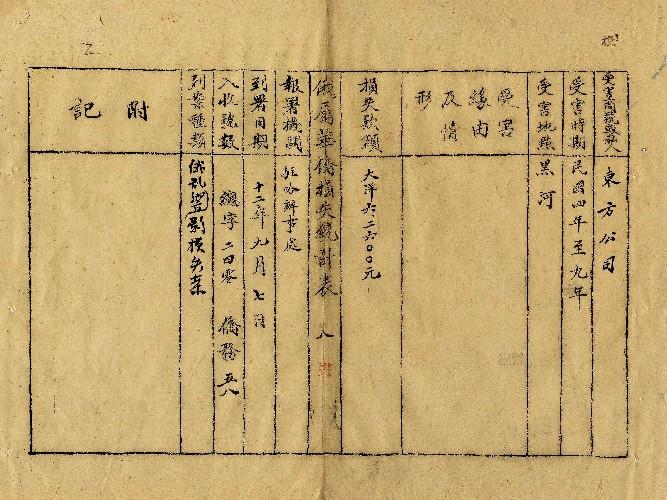 受害商號或人 東方公司
受害時期 民國四年至九年
受害地點 黑河
受害緣由及情形
損失款額 大洋六二六〇〇元
俄屬華僑損失統計表 八
報署機關 駐哈辦事處
到署日期 十二年九月七日
入收號數 總字二四零 僑務五八
列案種類 俄亂影損失案
附記